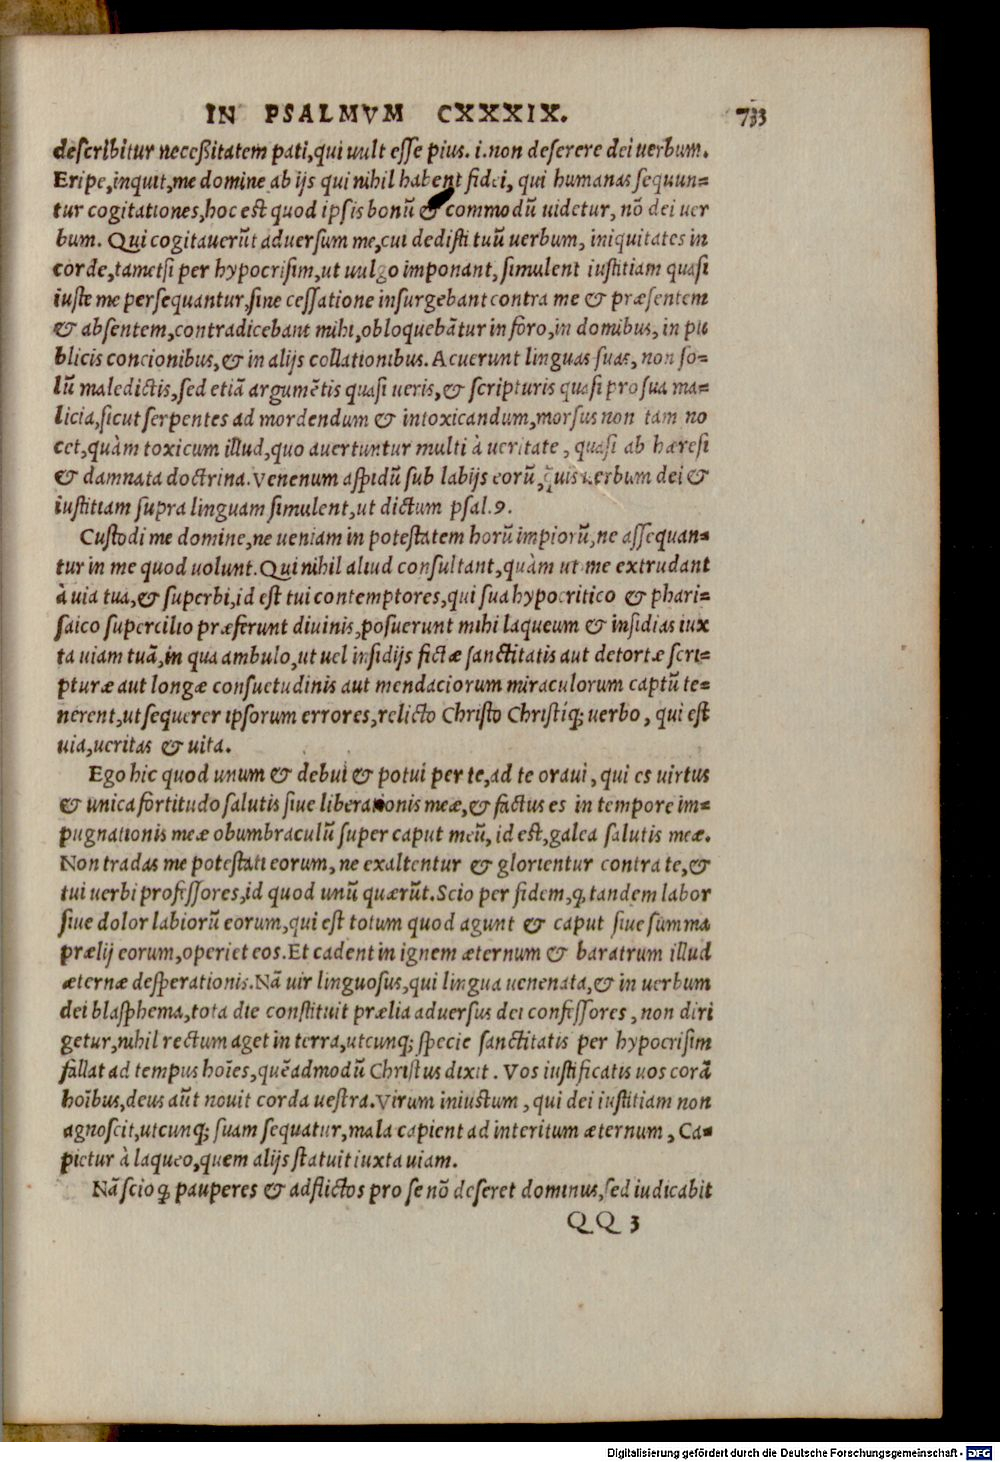 IN PSALMVM CXXXIX. 733
describitur neceßitatem pati, qui uult esse pius. i. non deserere dei uerbum.
Eripe, inquit, me domine ab ijs qui nihil habent fidei, qui humanas sequun=
tur cogitationes, hoc est quod ipsis bonū & commodū uidetur, nō dei uer
bum. Qui cogitauerūt aduersum me, cui dedisti tuū uerbum, iniquitates in
corde, tametsi per hypocrisim, ut uulgo imponant, simulent iustitiam quasi
iuste me persequantur, sine cessatione insurgebant contra me & præsentem
& absentem, contradicebant mihi, obloquebātur in foro, in domibus, in pu
blicis concionibus, & in alijs collationibus. Acuerunt linguas suas, non so=
lū maledictis, sed etiā argumētis quasi ueris, & scripturis quasi pro sua ma=
licia, sicut serpentes ad mordendum & intoxicandum, morsus non tam no
cet, quàm toxicum illud, quo auertuntur multi à ueritate, quasi ab hæresi
& damnata doctrina. Venenum aspidū sub labijs eorū, q̃uis uerbum dei &
iustitiam supra linguam simulent, ut dictum psal. 9.
Custodi me domine, ne ueniam in potestatem horū impiorū, ne assequan=
tur in me quod uolunt. Qui nihil aliud consultant, quàm ut me extrudant
à uia tua, & superbi, id est tui contemptores, qui sua hypocritico & phari=
saico supercilio præferunt diuinis, posuerunt mihi laqueum & insidias iux
ta uiam tuā, in qua ambulo, ut uel insidijs fictæ sanctitatis aut detortæ scri=
pturæ aut longæ consuetudinis aut mendaciorum miraculorum captū te=
nerent, ut sequerer ipsorum errores, relicto Christo Christiq; uerbo, qui est
uia, ueritas & uita.
Ego hic quod unum & debui & potui per te, ad te oraui, qui es uirtus
& unica fortitudo salutis siue liberationis meæ, & factus es in tempore im=
pugnationis meæ obumbraculū super caput meū, id est, galea salutis meæ.
Non tradas me potestati eorum, ne exaltentur & glorientur contra te, &
tui uerbi professores, id quod unū quærūt. Scio per fidem, ꝙ tandem labor
siue dolor labiorū eorum, qui est totum quod agunt & caput siue summa
prælij eorum, operiet eos. Et cadent in ignem æternum & baratrum illud
æternæ desperationis. Nā uir linguosus, qui lingua uenenata, & in uerbum
dei blasphema, tota die constituit prælia aduersus dei confessores, non diri
getur, nihil rectum aget in terra, utcunq; specie sanctitatis per hypocrisim
fallat ad tempus hoīes, quēadmodū Christus dixit. Vos iustificatis uos corā
hoībus, deus aūt nouit corda uestra. Virum iniustum, qui dei iustitiam non
agnoscit, utcunq; suam sequatur, mala capient ad interitum æternum, Ca=
pietur à laqueo, quem alijs statuit iuxta uiam.
Nā scio ꝙ pauperes & adflictos pro se nō deseret dominus, sed iudicabit
QQ 3
Digitalisierung gefördert durch die Deutsche Forschungsgemeinschaft - DFG